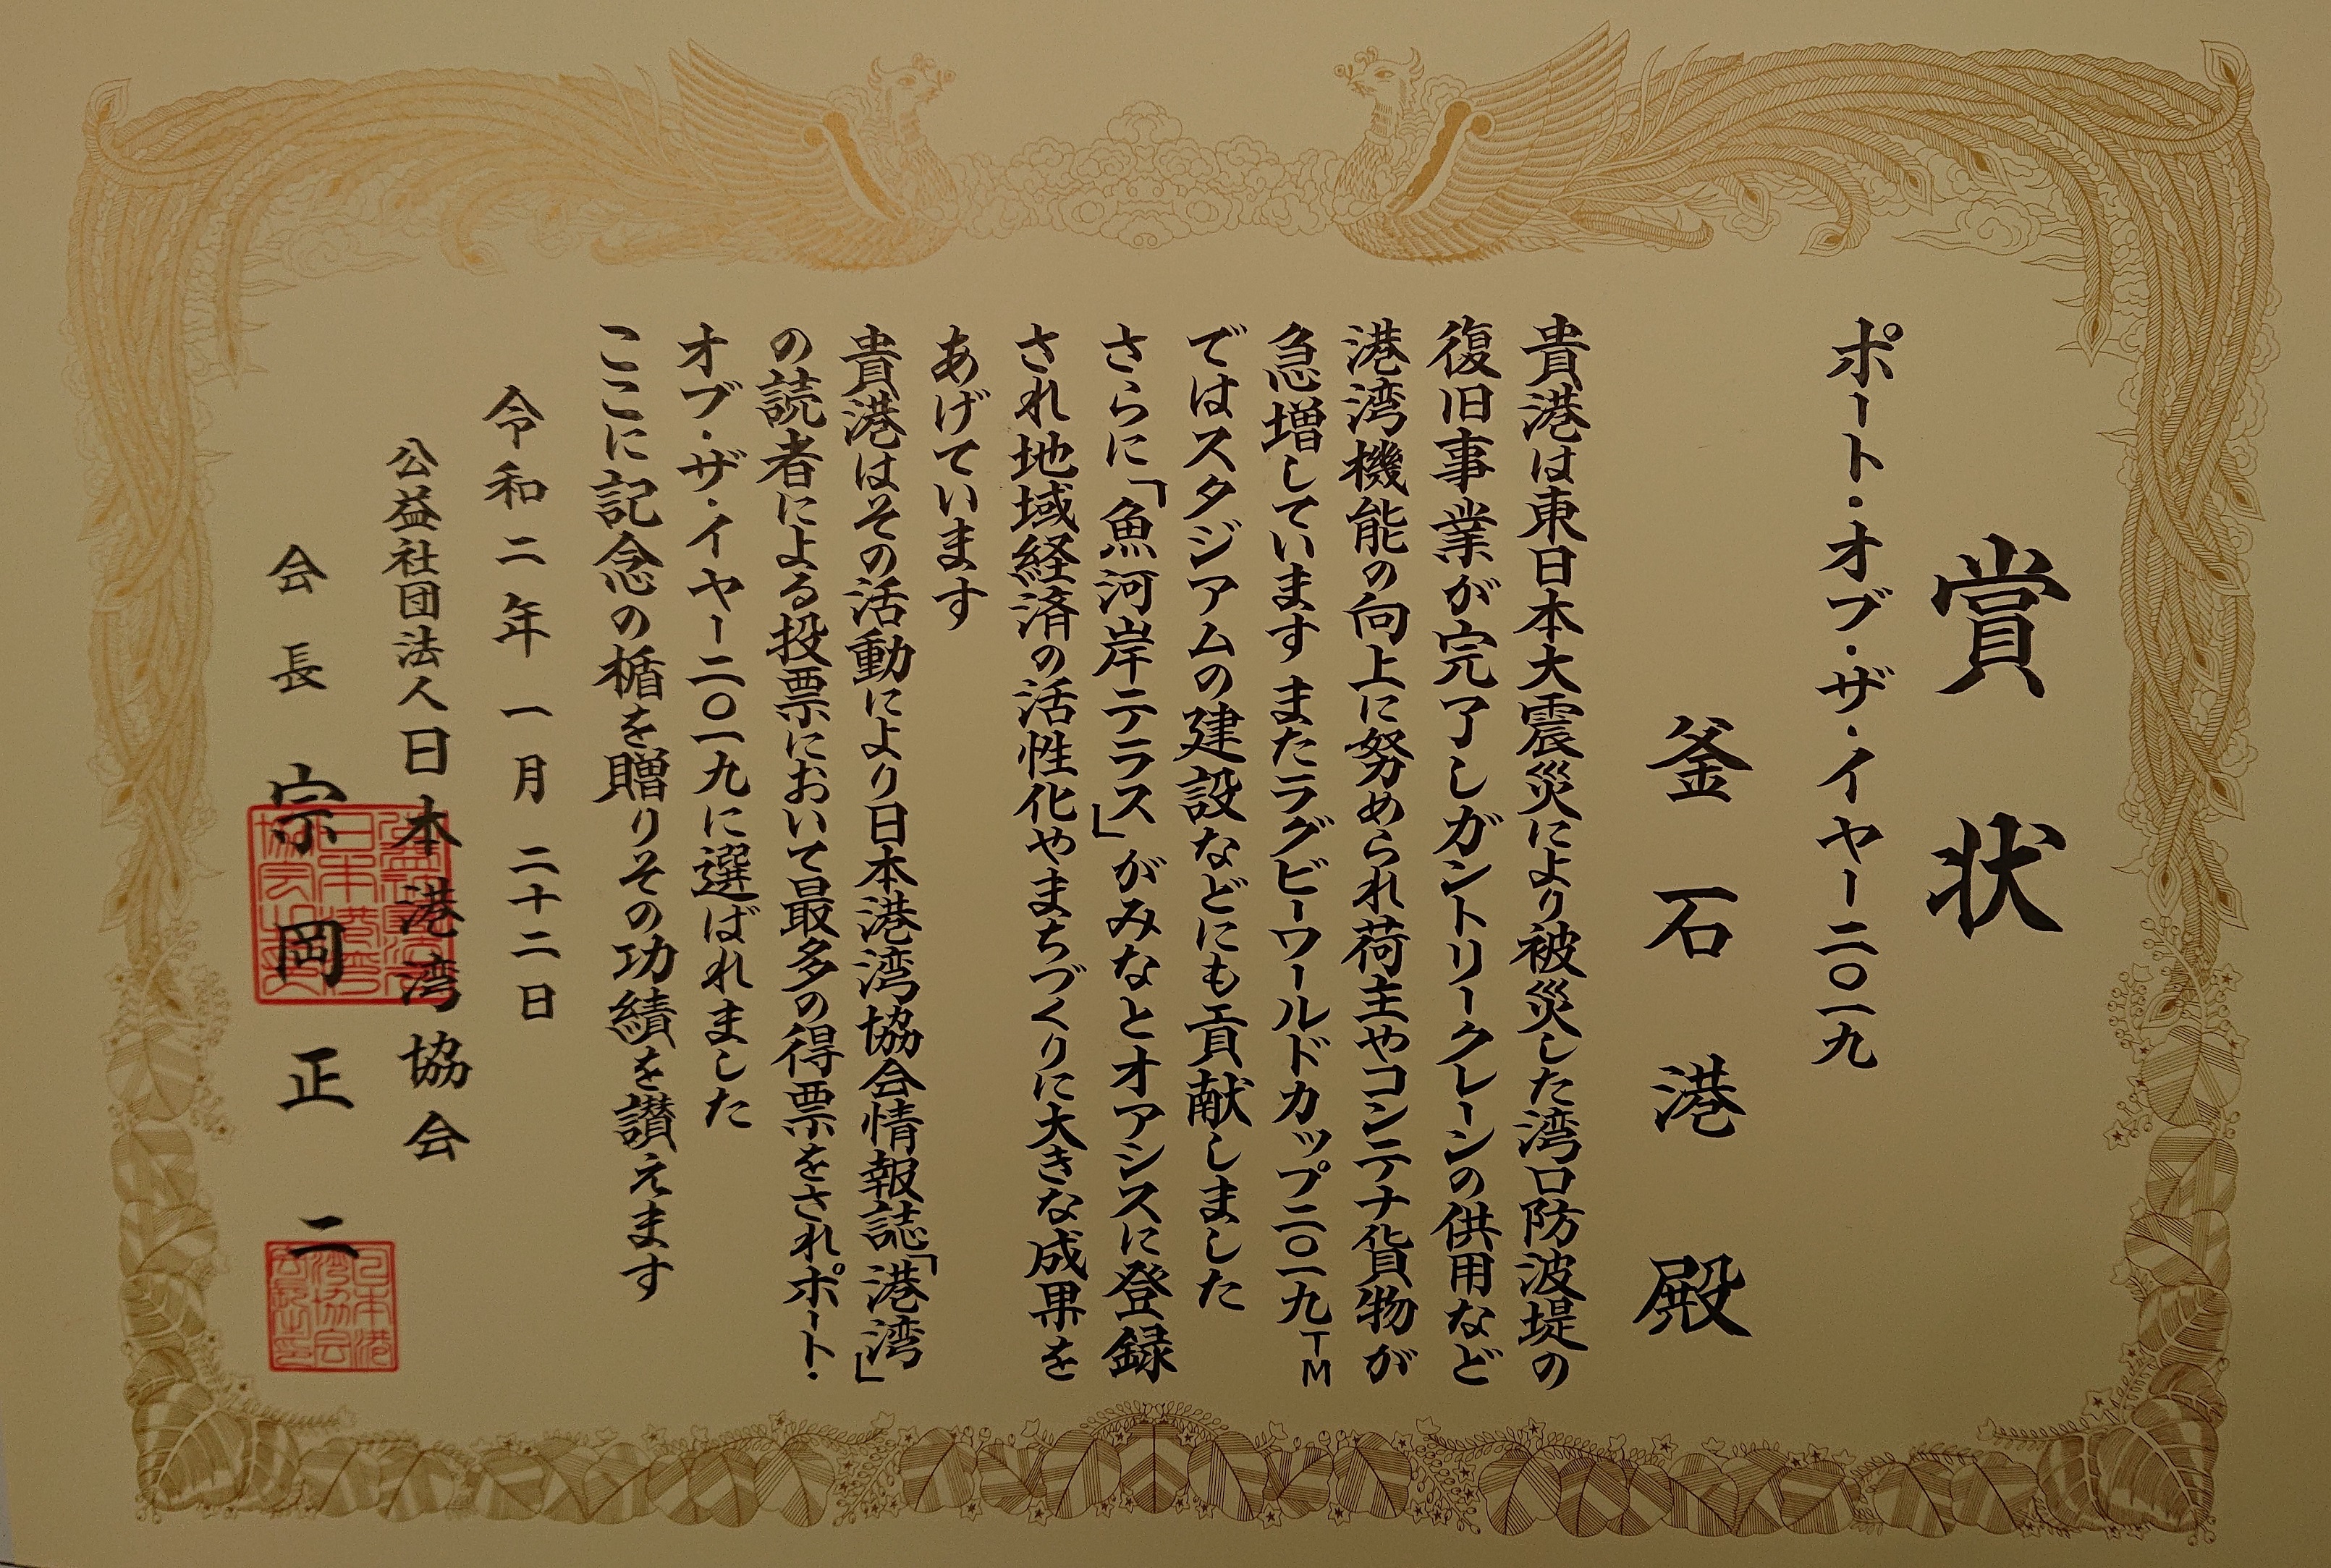 賞状
ポート・オブ・ザ・イヤー二〇一九
釜石港殿
貴港は東日本大震災により被災した湾口防波堤の
復旧事業が完了しガントリークレーンの供用など
港湾機能の向上に努められ荷主やコンテナ貨物が
急増しています またラグビーワールドカップ二〇一九TM
ではスタジアムの建設などにも貢献しました
さらに「魚河岸テラス」がみなとオアシスに登録
され地域経済の活性化やまちづくりに大きな成果を
あげています
貴港はその活動により日本港湾協会情報誌「港湾」
の読者による投票において最多の得票をされポート・
オブ・ザ・イヤー二〇一九に選ばれました
ここに記念の楯を贈りその功績を讃えます
令和二年一月二十二日
公益社団法人日本港湾協会
会長 宗岡正二